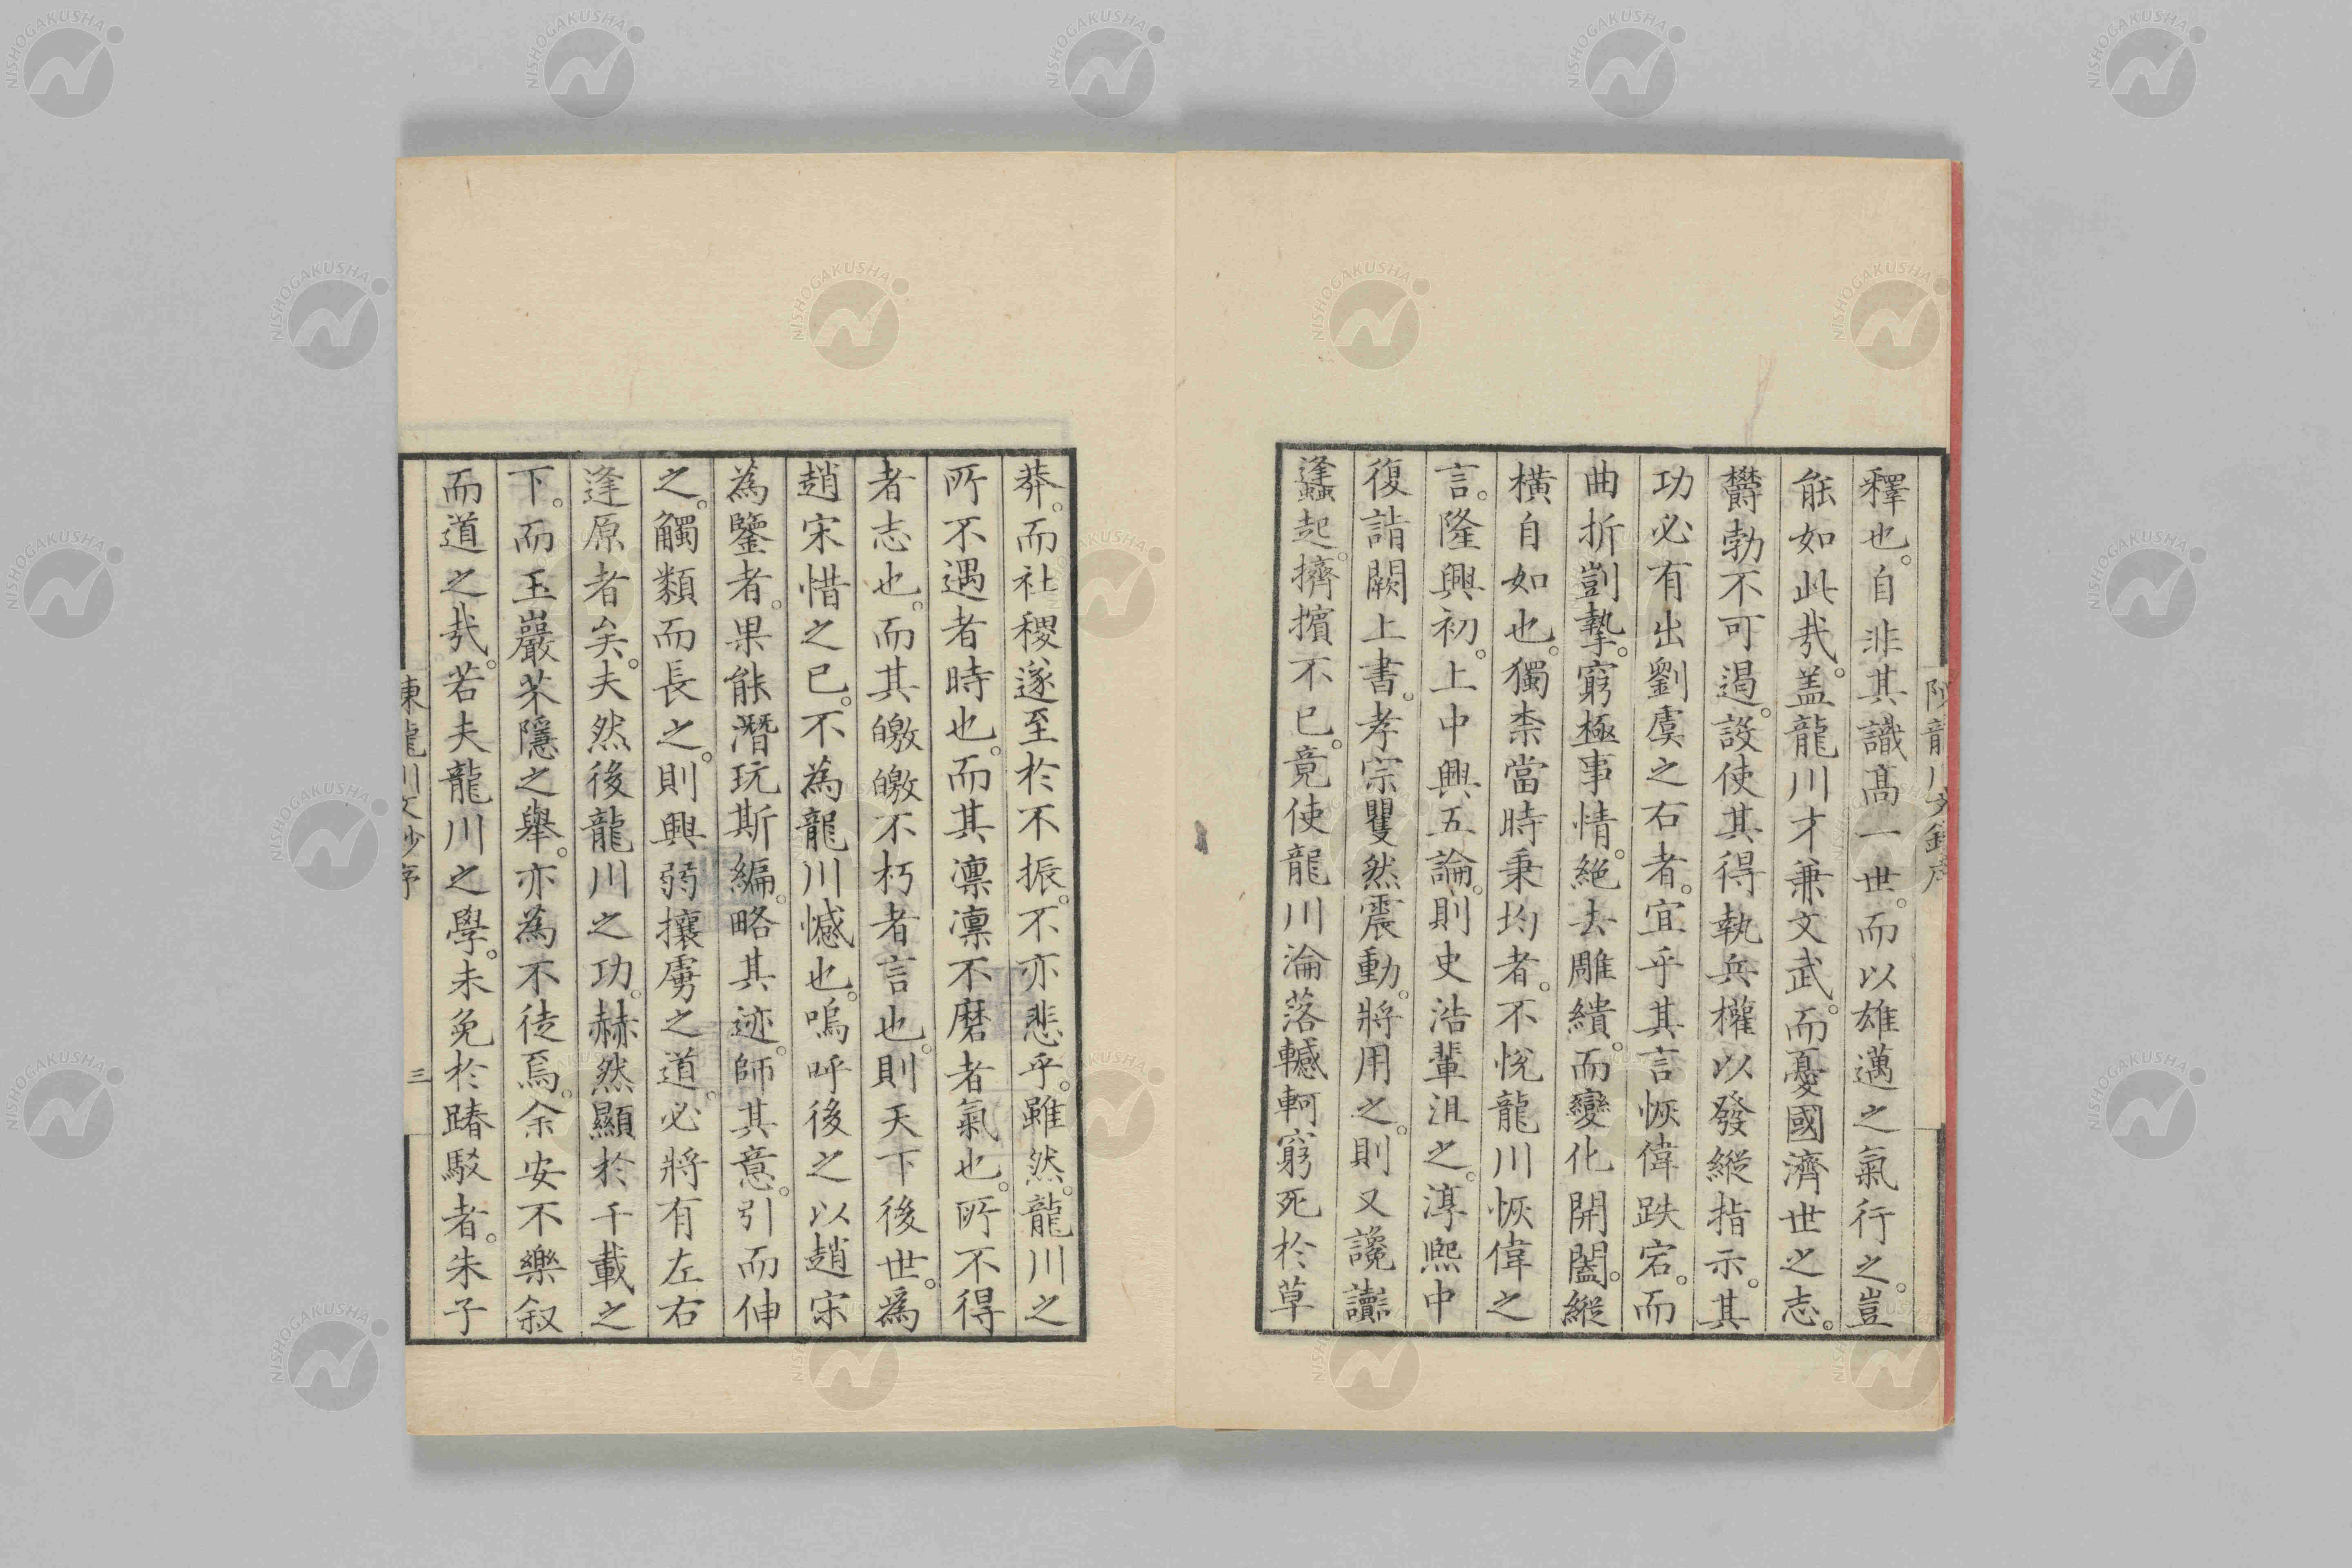 釋也。自非其識髙一世。而以雄邁之氣行之。豈
能如此哉。盖龍川才兼文武。而憂國濟世之志。
欝勃不可遏。設使其得執兵權以發縱指示。其
功必有出劉虞之右者。宜乎其言恢偉跌宕。而
曲折剴摯。窮極事情。絕去雕繢。而變化開闔。縱
横自如也。獨柰當時秉均者。不悅龍川恢偉之
言。隆興初。上中興五論。則史浩輩沮之。淳熙中
復詣闕上書。孝宗矍然震動。將用之。則又讒讟
逢起。擠擯不已。竟使龍川淪落轗軻窮死於草
莽。而社稷遂至於不振。不亦悲乎。雖然。龍川之
所不遇者時也。而其凛凛不磨者氣也。所不得
者志也。而其皦皦不朽者言也。則天下後世。為
趙宋惜之已。不為龍川憾也。嗚呼後之以趙宋
為鑒者。果能潛玩斯編。略其迹。師其意。引而伸
之。觸類而長之。則興弱攘虜之道。必將有左右
逢原者矣。夫然後龍川之功。赫然顯於千載之
下。而玉巖棊隱之舉。亦為不徒焉。余安不樂叙
而道之哉。若夫龍川之學。未免於踳駁者。朱子
陳龍川文鈔序
三
NISHOGAKUSHA